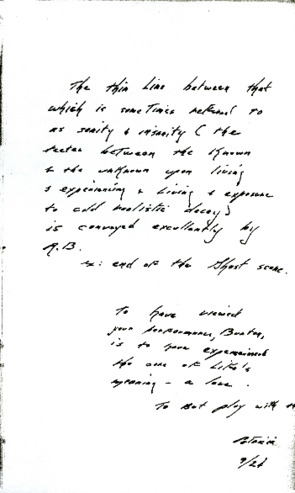 The thin line between that
which is sometimes referred to
as sanity & insanity (the
between the known
& the unknown upon living
& experiencing & living & exposure
to cold realistic decay)
is conveyed excellantly by
R.B.
end of the Ghost scene.
To have viewed
your performance, Burton,
is to have experienced
the one of Life's
meaning - a love.
To not play with
9/26